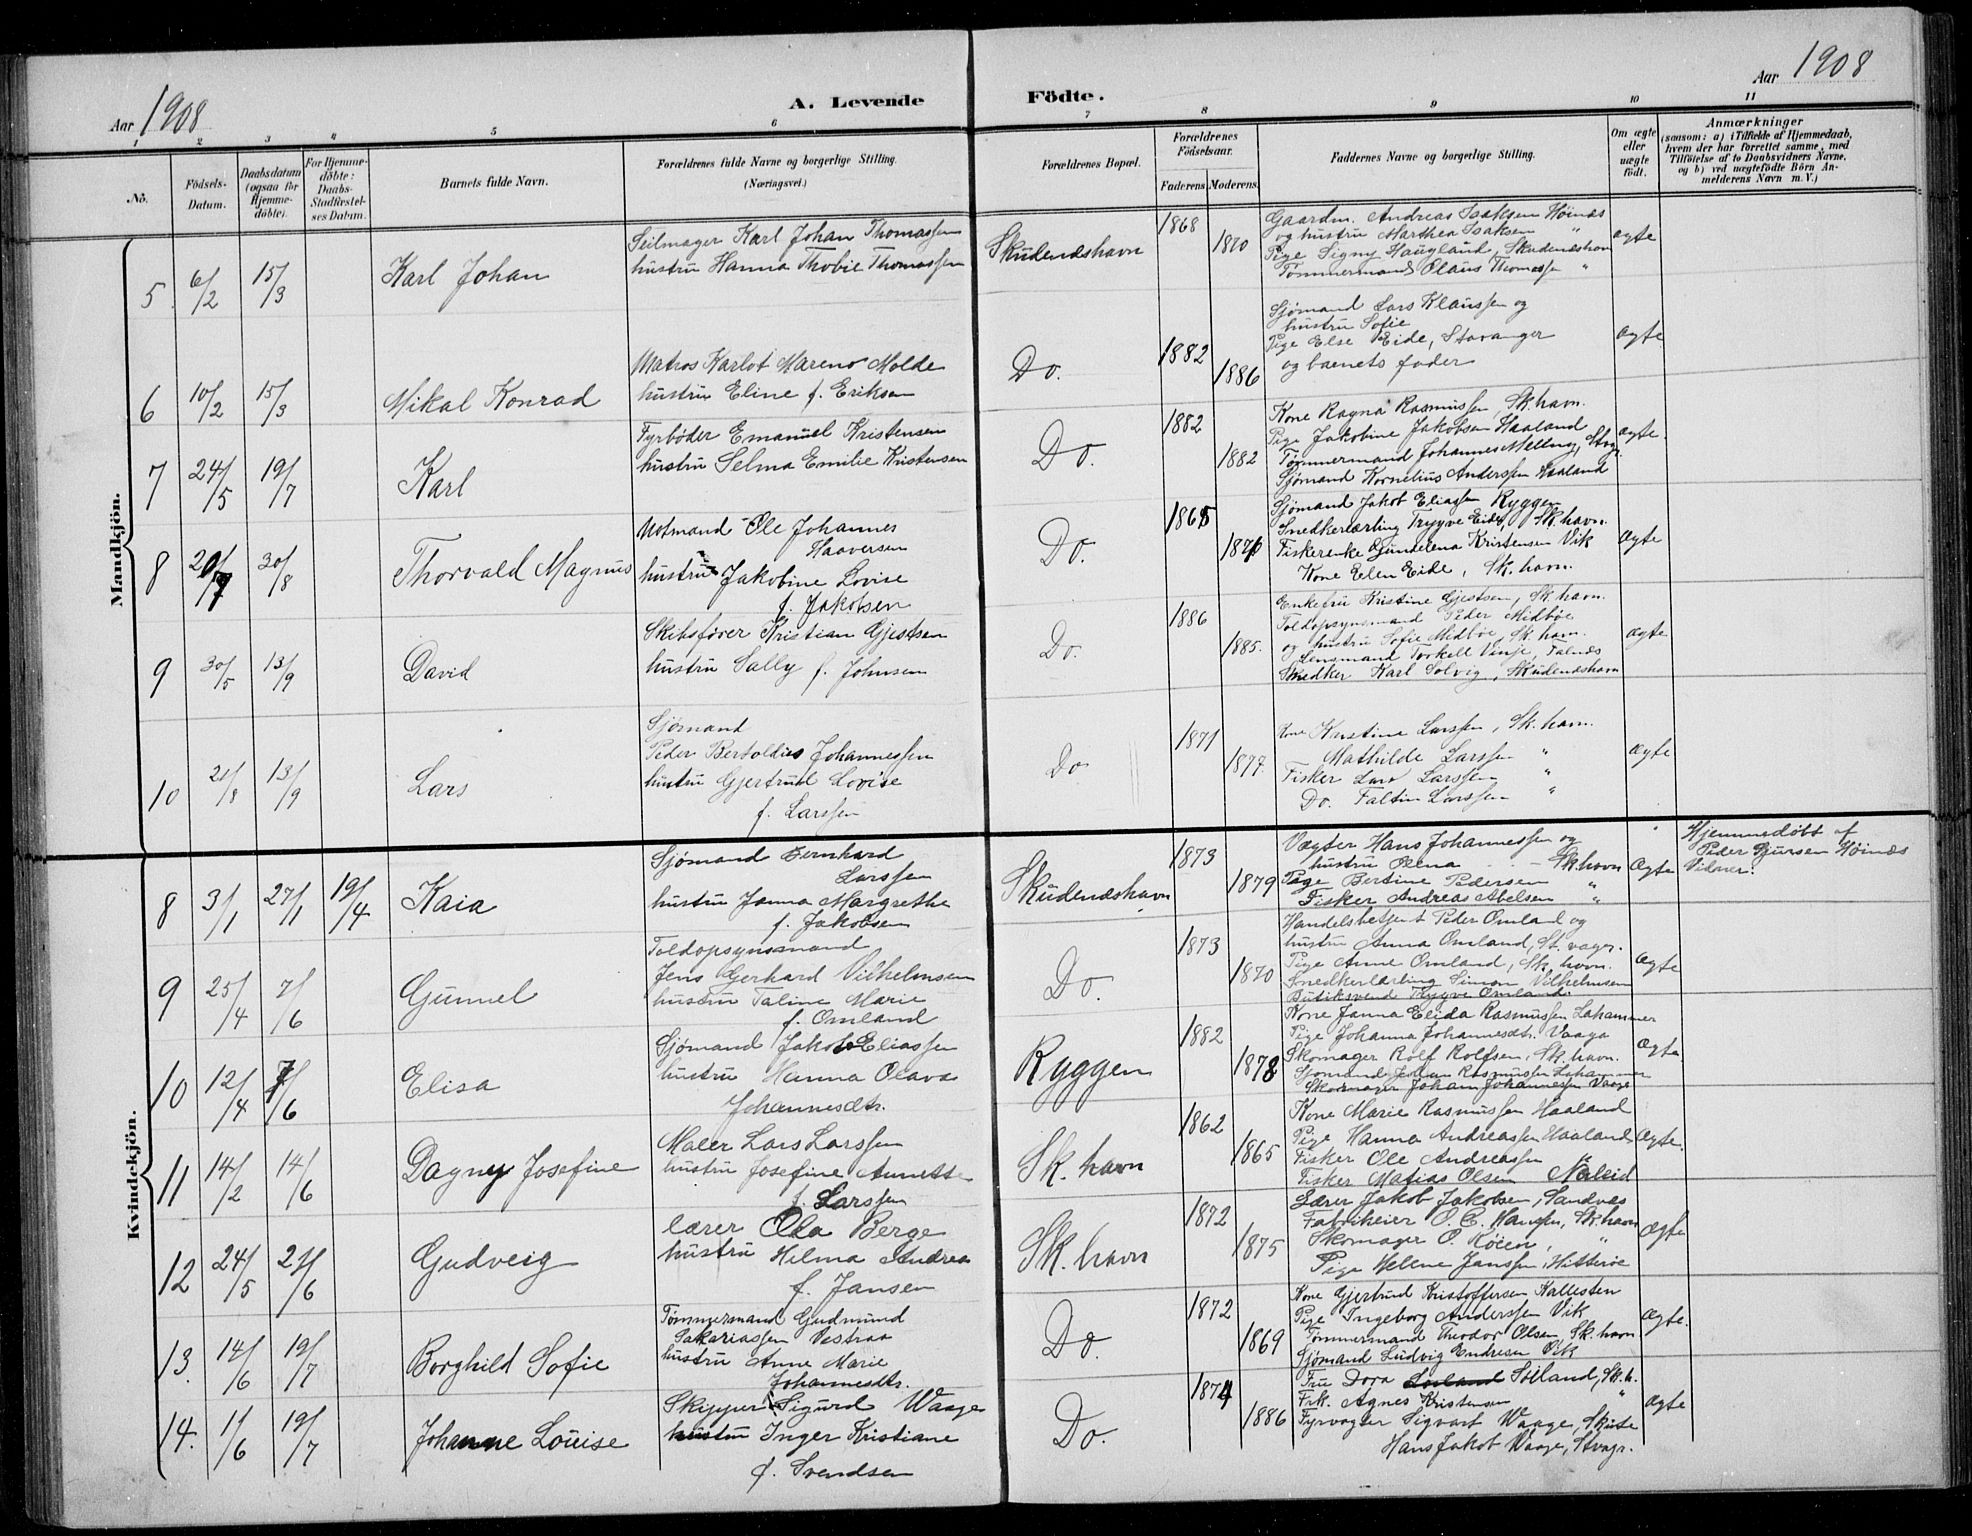 Aar 1908
A. Levende
Födte.
Aar 1908
1 2 3 4 5 6 7 8 9 10 11
Nö.
Födsels-Datum.
Daabsdatum (ogsaa for Hjemme-döbte).
For Hjemme-döbte: Daabs-Stadfæstel-ses Datum.
Barnets fulde Navn.
Forældrenes fulde Navne og borgerlige Stilling. (Næringsvei.)
Forældrenes Bopæl.
Forældrenes Födselsaar.
Faderens. Moderens.
Faddernes Navne og borgerlige Stilling.
Om ægte eller uægte födt.
Anmærkninger
(saasom: a) i Tilfælde af Hjemmedaab, hvem der har forrettet samme, med Tilföielse af to Daabsvidners Navne, og b) ved uægtefödte Börn Anmelderens Navn m. V.)
Mandkjön.
5 6/2 15/3 Karl Johan
Seilmager Karl Johan Thomassen
hustru Hanna Thobie Thomassen
Skudenæshavn 1868 1870
Gaardm. Andreas Isaksen Høinæs
og hustru Marthea Isaksen "
Pige Signy Haugland, Skudenæshavn
Tømmermand Claus Thomassen "
ægte
6 10/2 15/3 Mikal Konrad
Matros Karlot Mareno Molde
hustru Eline f. Eriksen
Do. 1882 1886
Sjømand Lars Klaussen og
hustru Sofie
Pige Else Eide, Stavanger
og barnets fader
ægte
7 24/5 19/7 Karl
Fyrbøder Emanuel Kristensen
hustru Selma Emilie Kristensen
Do. 1882 1882
Kone Ragna Rasmussen, Sk.havn.
Pige Jakobine Jakobsen Haaland
Tømmermand Johannes Melling, Stvgr.
Sjømand Kornelius Anderssen Haaland
ægte.
8 20/7 30/8 Thorvald Magnus
Notmand Ole Johannes
Haaversen
hustru Jakobine Lovise
f. Jakobsen
Do. 1865 1876
Sjømand Jakob Eliassen Ryggen
Snedkerlærling Trygve Eide, Sk.havn.
Fiskerenke Gundelena Kristensen Vik
Kone Elen Eide, Sk.havn.
ægte
9 30/5 13/9 David
Skibsfører Kristian Gjestsen
hustru Sally f. Johnsen
Do. 1886 1885.
Enkefru Kristine Gjestsen, Sk.havn.
Toldopsynsmand Peder Midbøe
og hustru Sofie Midbøe, Sk.havn.
Lensmand Torkell Vinje, Falnæs
Snedker Karl Solvig, Skudenæshavn
ægte
10 21/8 13/9 Lars
Sjømand
Peder Bertoldius Johannessen
hustru Gjertrud Lovise
f. Larssen
Do 1871 1877.
Kone Kristine Larssen, Sk.havn.
Mathilde Larssen "
Fisker Lars Larssen "
Do. Faltin Larssen "
ægte
Kvindekjön.
8 3/1 27/1 19/4 Kaia
Sjømand Bernhard
Larssen
hustru Janna Margrethe
f. Jakobsen
Skudenæshavn 1873 1879
Vægter Hans Johannessen og
hustru Olena - - - Sk.havn
Pige Bertine Pedersen "
Fisker Andreas Abelsen "
ægte
Hjemmedøbt af
Peder Gjursen Høinæs
Vidner:
9 25/4 7/6 Gunnel
Toldopsynsmand
Jens Gerhard Vilhelmsen
hustru Taline Marie
f. Omland
Do. 1873 1870
Handelsbetjent Peder Omland og
hustru Anna Omland, St.vagr.
Pige Anne Omland, Sk.havn.
Snedkerlærling Simon Vilhelmsen
Butiksvend Trygve Omland.
ægte
10 12/4 7/6 Elisa
Sjømand Jakob Eliassen
hustru Hanna Olava
Johannesdtr.
Ryggen 1882 1878
Kone Janna Elida Rasmussen Lahammer
Pige Johanna Johannesdtr. Vaaga
Skomager Rolf Rolfsen, Sk.havn.
Sjømand Johan Rasmussen Lahammer
Skomager Johan Johannessen Vaage
ægte.
11 14/2 14/6 Dagny Josefine
Maler Lars Larssen
hustru Josefine Annette
f. Larssen
Sk.havn 1862 1865
Kone Marie Rasmussen Haaland
Pige Hanna Andreassen Haaland
Fisker Ole Andreassen "
Fisker Matias Olsen
ægte.
12 24/5 21/6 Gudveig
lærer Ola Berge
hustru Hilma Andrea
f. Jansen
Sk.havn 1872 1875
Lærer Jakob Jakobsen, Sandvæs
Fabrikeier O. C. Hanssen, Sk.havn
Skomager O. Røien, "
Pige Helene Janssen, Hitterøe
ægte
13. 14/6 19/7 Borghild Sofie
Tømmermand Gudmund
Sakariassen Vestraa
hustru Anne Marie
Johannesdtr.
Do. 1872 1869
Kone Gjertrud Kristoffersen Kallesten
Pige Ingeborg Anderssen Vik
Tømmermand Theodor Olsen, Sk.havn
Sjømand Ludvig Endresen Vik
ægte.
14. 1/6 19/7 Johanne Louise
Skipper Sigurd Waage
hustru Inger Kristiane
f. Svendsen
Do. 1874 1886
Fru Dora Sølland, Sk.h.
Frk. Agnes Kristensen "
Fyrvogter Sigvart Waage, Skute
Hans Jakob Waage, Stvagr.
ægte